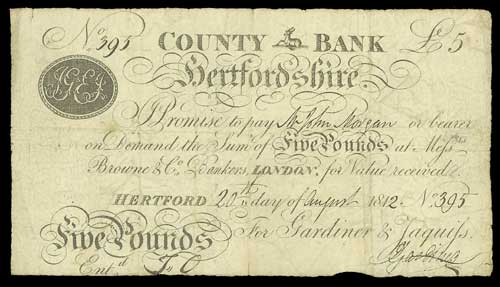 No. 395 COUNTY BANK £5
Hertfordshire.
I Promise to pay Mr. John Morgan or bearer
on Demand the Sum of FIVE POUNDS at Messrs
Browne & Co. Bankers, LONDON, for Value received.
HERTFORD 20th day of August 1812 No. 395
FIVE POUNDS For Gardiner & Jaquess.
Entd.